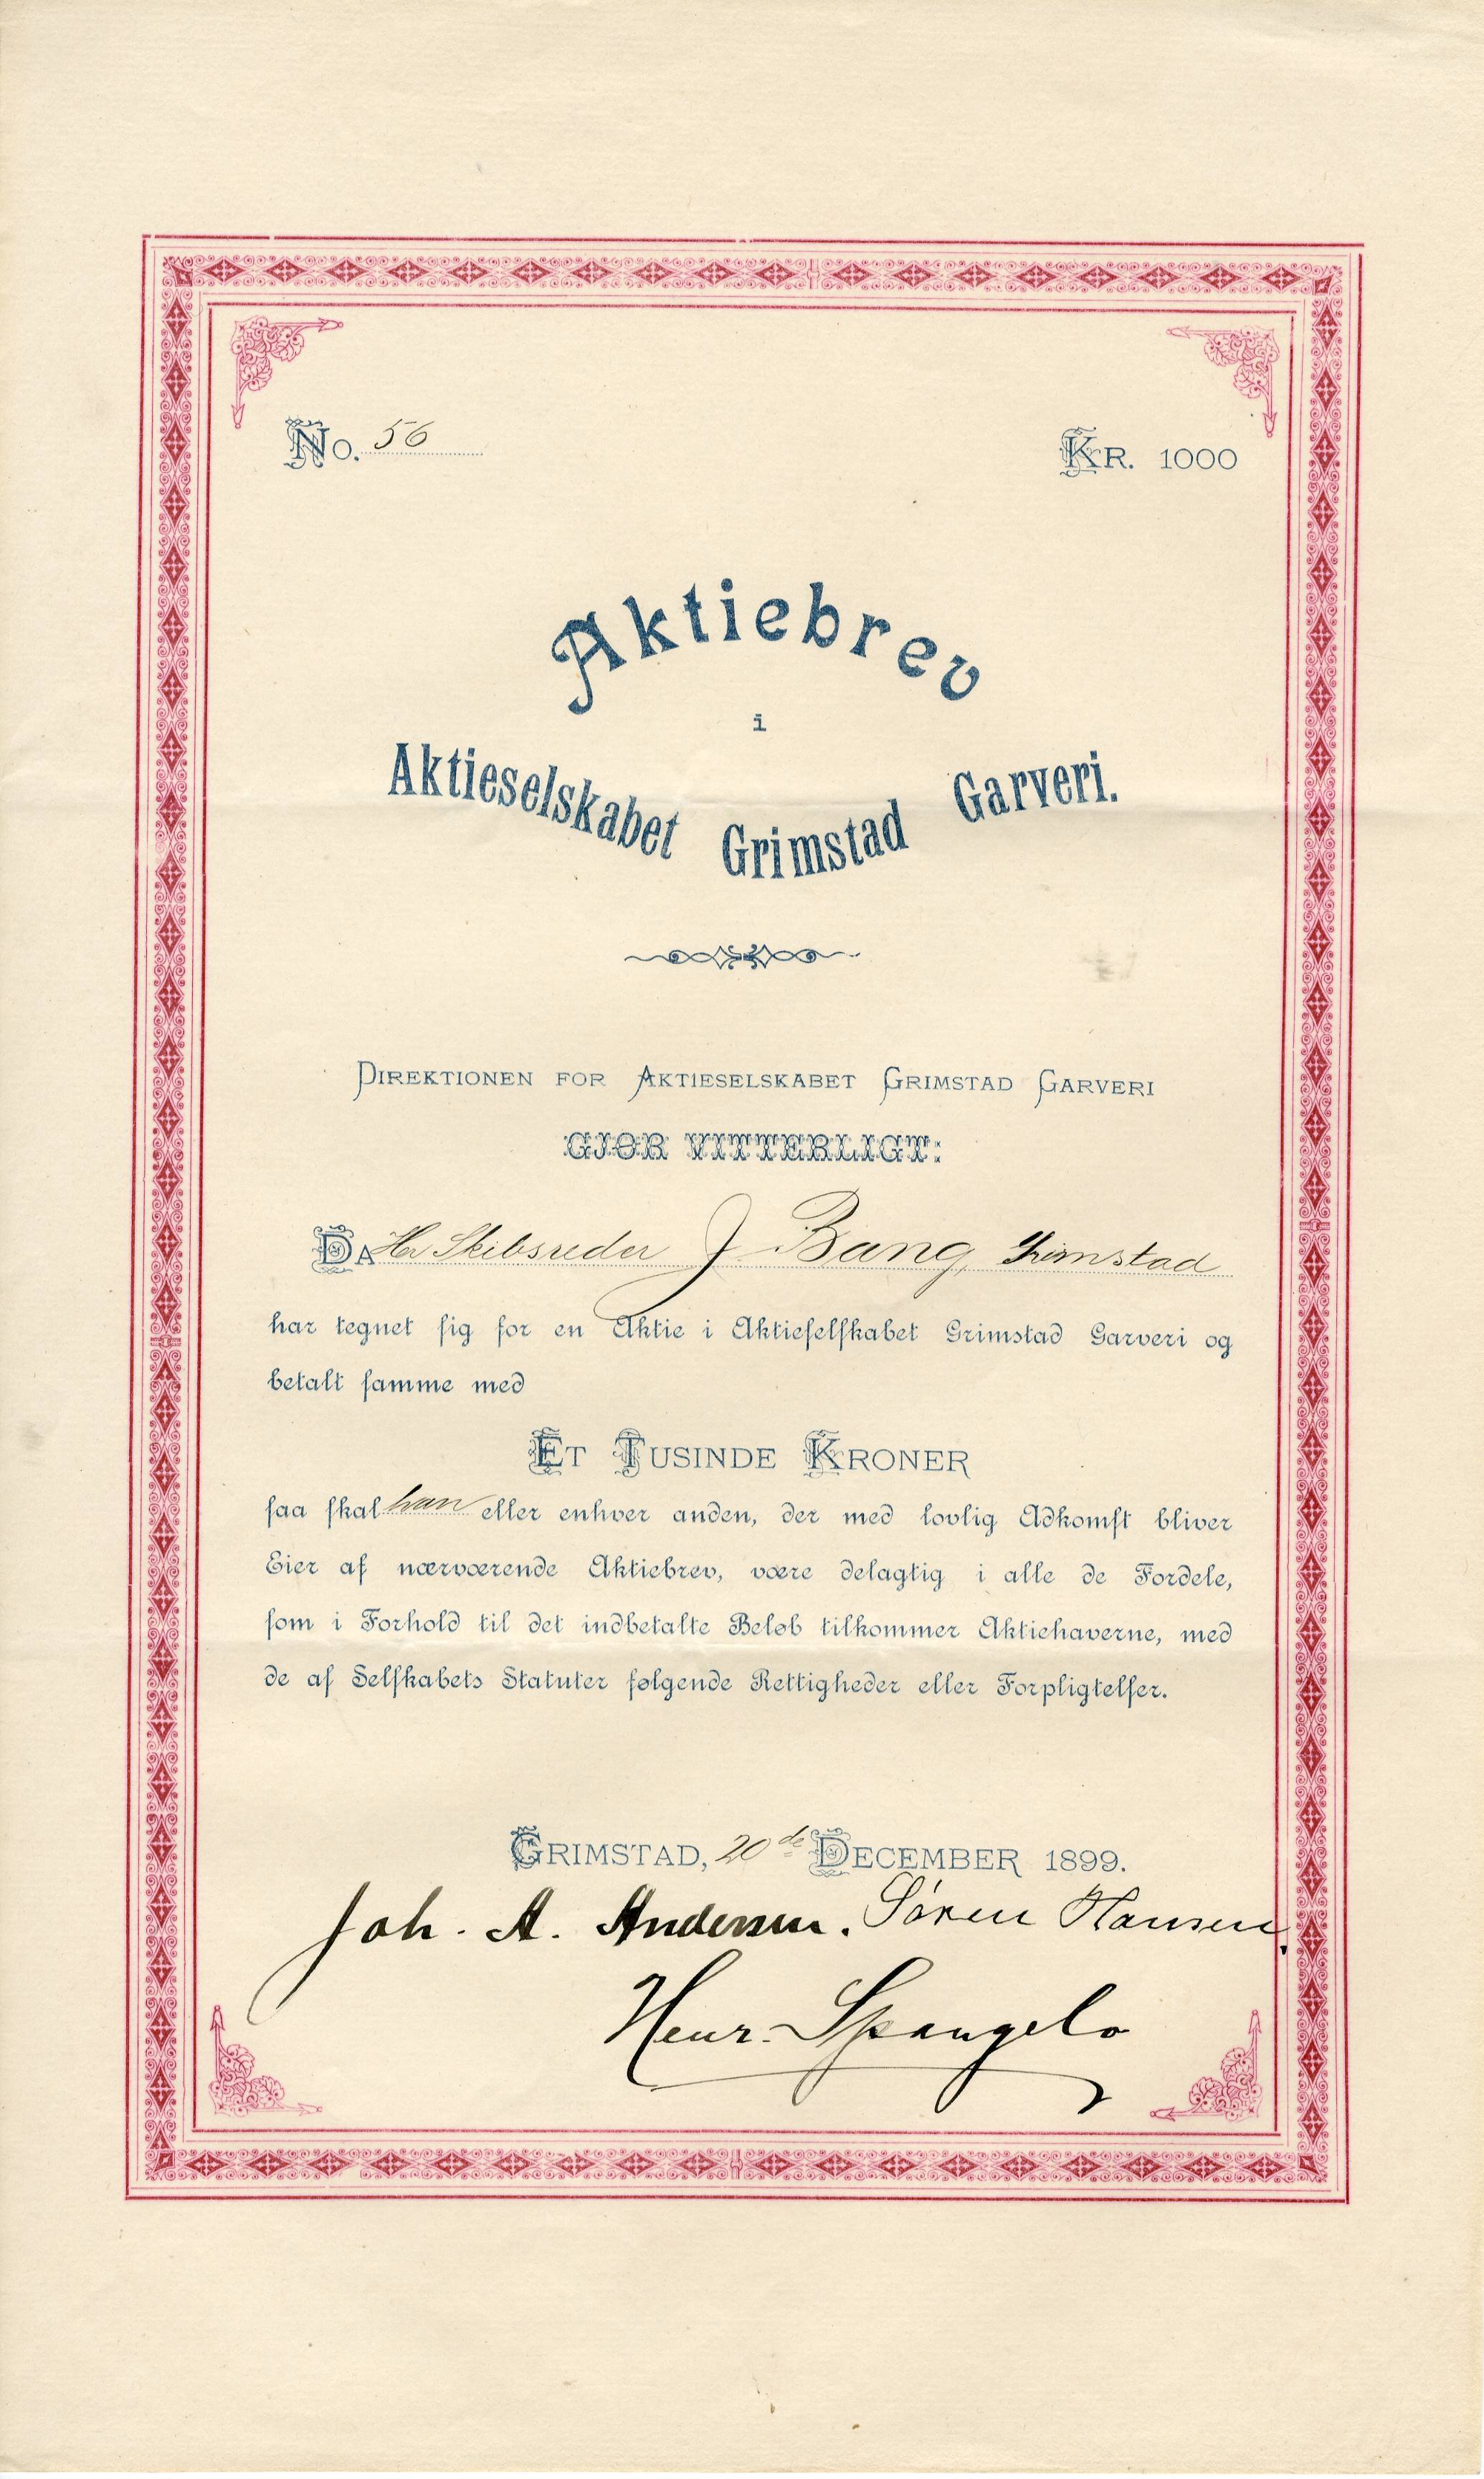 No. 56
Kr. 1000
Aktiebrev
i
Aktieselskabet Grimstad Garveri.
Direktionen for Aktieselskabet Grimstad Garveri
GJØR VITTERLIGT:
Da Hr Skibsreder J Bang, Grimstad
har tegnet sig for en Aktie i Aktieselskabet Grimstad Garveri og
betalt samme med
Et Tusinde Kroner
saa skal han eller enhver anden, der med lovlig Adkomst bliver
Eier af nærværende Aktiebrev, være delagtig i alle de Fordele,
som i Forhold til det indbetalte Beløb tilkommer Aktiehaverne, med
de af Selskabets Statuter følgende Rettigheder eller Forpligtelser.
Grimstad, 20de December 1899.
Joh. A. Andersen. Søren Hansen.
Henr. Spangelo